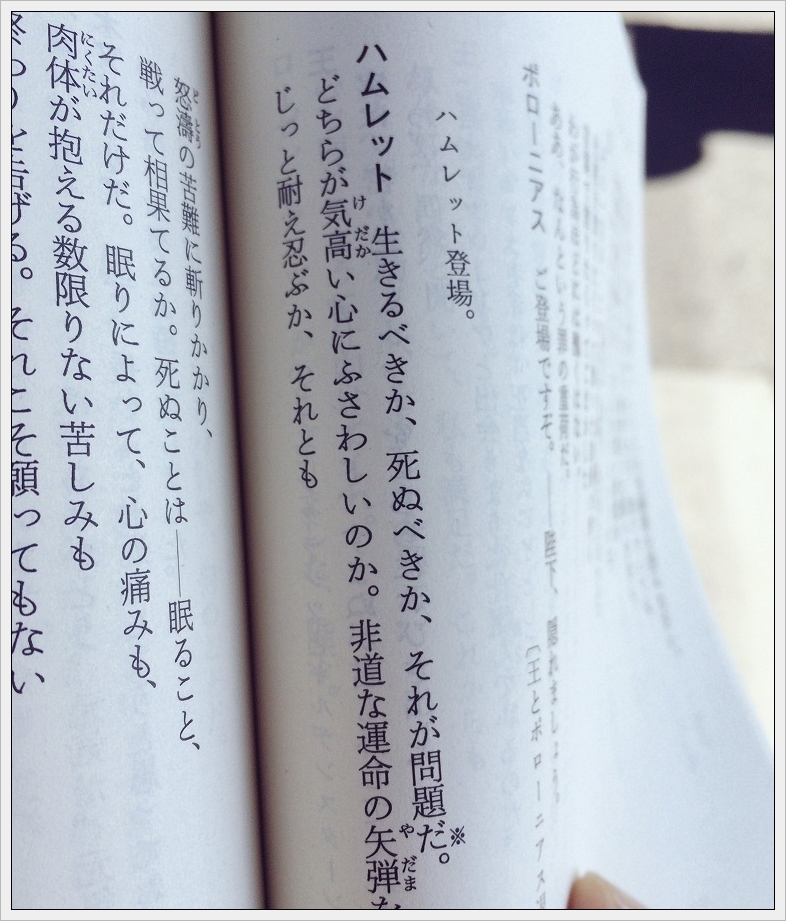 ああ、なんという罪の重荷だ。
ポローニアス　ご登場ですぞ。――陛下、隠れましょう。
〔王とポローニアス
ハムレット登場。
ハムレット　生きるべきか、死ぬべきか、それが問題だ。※
どちらが気高い心にふさわしいのか。非道な運命の矢弾
じっと耐え忍ぶか、それとも
怒濤の苦難に斬りかかり、
戦って相果てるか。死ぬことは――眠ること、
それだけだ。眠りによって、心の痛みも、
肉体が抱える数限りない苦しみも
終わりと告げる。それこそ願ってもない